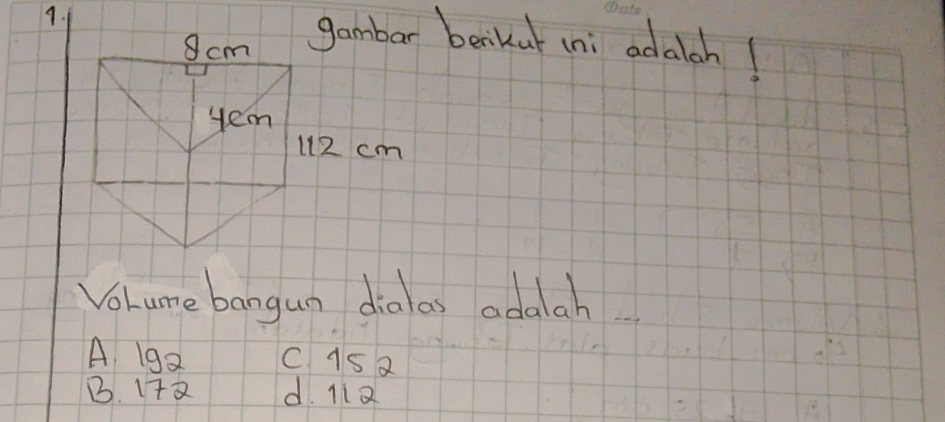 Date
1. gambar berikut ini adalah !
8cm
4cm
112 cm
Volume bangun diatas adalah ...
A. 192 C. 152
B. 172 d. 112